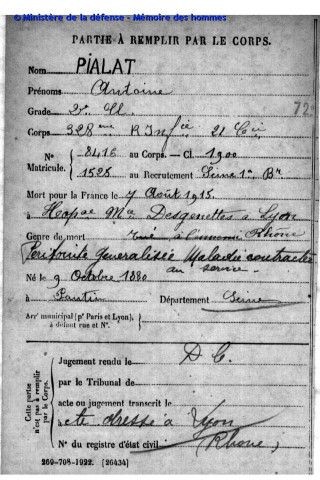 © Ministère de la défense - Mémoire des hommes
PARTIE À REMPLIR PAR LE CORPS.
Nom PIALAT
Prénoms Antoine
Grade 2e Cl. 72
Corps 328me R Infie 21 Cie
N° 8416 au Corps. — Cl. 1900
Matricule. 1528 au Recrutement Seine 1er Bau
Mort pour la France le 7 Août 1915
à Hopal Mre Desgenettes à Lyon
Genre de mort tué à l'ennemi Rhône
Peritonite généralisée Maladie contractée
au service
Né le 9 Octobre 1880
à Pantin Département Seine
Arrt municipal (pr Paris et Lyon),
à défaut rue et N°.
Cette partie n'est pas à remplir par le Corps.
Jugement rendu le D C.
par le Tribunal de
acte ou jugement transcrit le
acte dressé à Lyon
N° du registre d'état civil (Rhône)
269-708-1922. [26434]